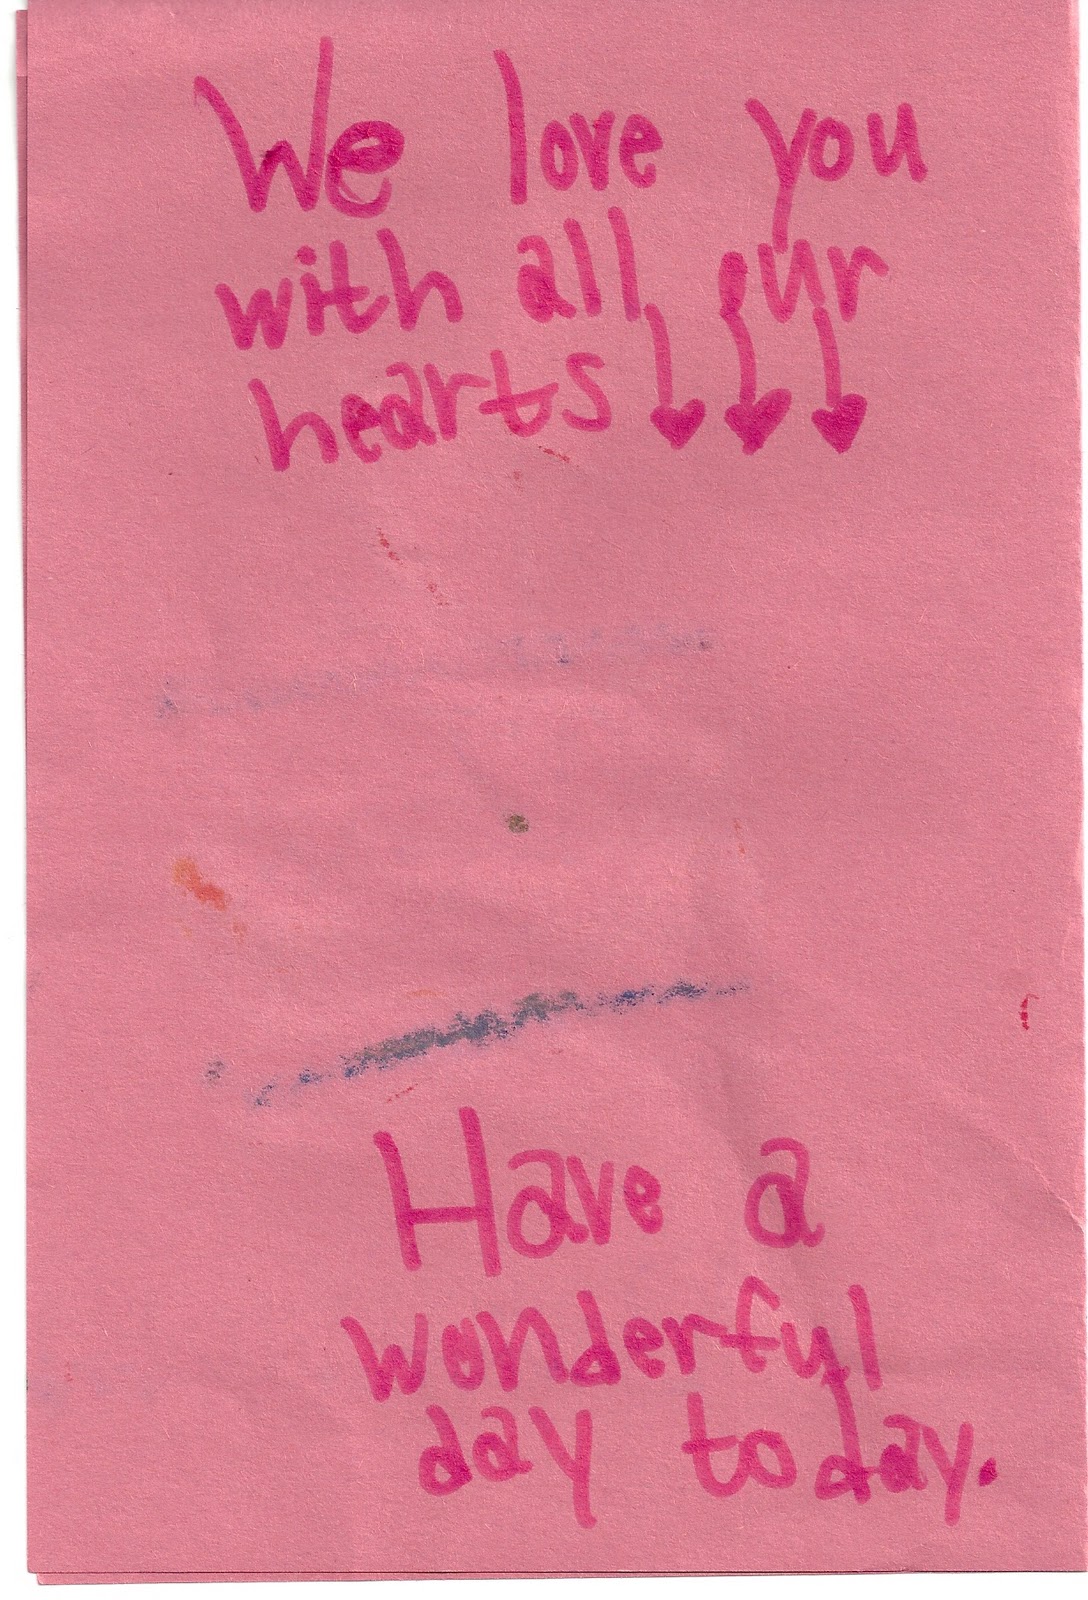 We love you
with all our
hearts
Have a
wonderful
day today.